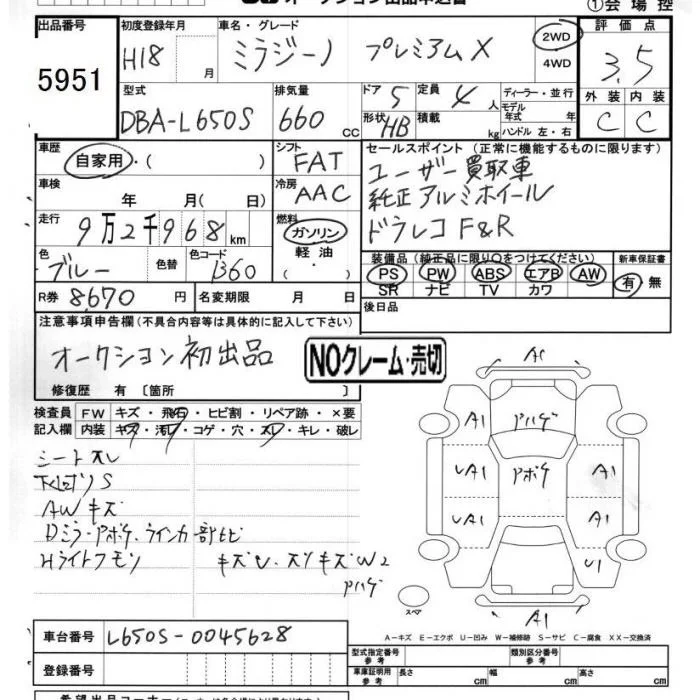 ①会場控
出品番号
5951
初度登録年月
H18 月
車名・グレード
ミラジーノ プレミアムX
2WD
4WD
評価点
3.5
外装 内装
C C
型式
DBA-L650S
排気量
660 CC
ドア 5
定員 4 人
形状 HB
積載 kg
ディーラー・並行
モデル年式 年式
ハンドル 左・右
車歴
自家用・( )
シフト
FAT
車検
年 月( 日)
冷房
AAC
走行
9万2千968 km
燃料
ガソリン
軽油
( ・ )
色
ブルー
色替
色コード
B60
R券 8,670 円
名変期限 月 日
セールスポイント (正常に機能するものに限ります)
ユーザー買取車
純正アルミホイール
ドラレコ F&R
装備品(純正品に限り○をつけてください)
PS PW ABS エアB AW
SR ナビ TV カワ
新車保証書
有・無
後日品
注意事項申告欄(不具合内容等は具体的に記入して下さい)
オークション初出品
NOクレーム・売切
修復歴 有〔箇所 〕
検査員 記入欄
FW キズ・飛石・ヒビ割・リペア跡・×要
内装 キズ・汚れ・コゲ・穴・スレ・キレ・破レ
シートスレ
下回りS
AWキズ
Dミラ・アポケ、ウインカ一部ヒビ
Hライトクモリ
キズU、スリキズW2
アハゲ
A1
A1 アハゲ A1
UA1 アポケ A1
UA1 A1
U1
A1
スペア
A-キズ E-エクボ U-凹み W-補修跡 S-サビ C-腐食 XX-交換済
車台番号
L650S-0045628
登録番号
型式指定番号 参考
類別区分番号 参考
車庫証明用 参考
長さ cm
幅 cm
高さ cm